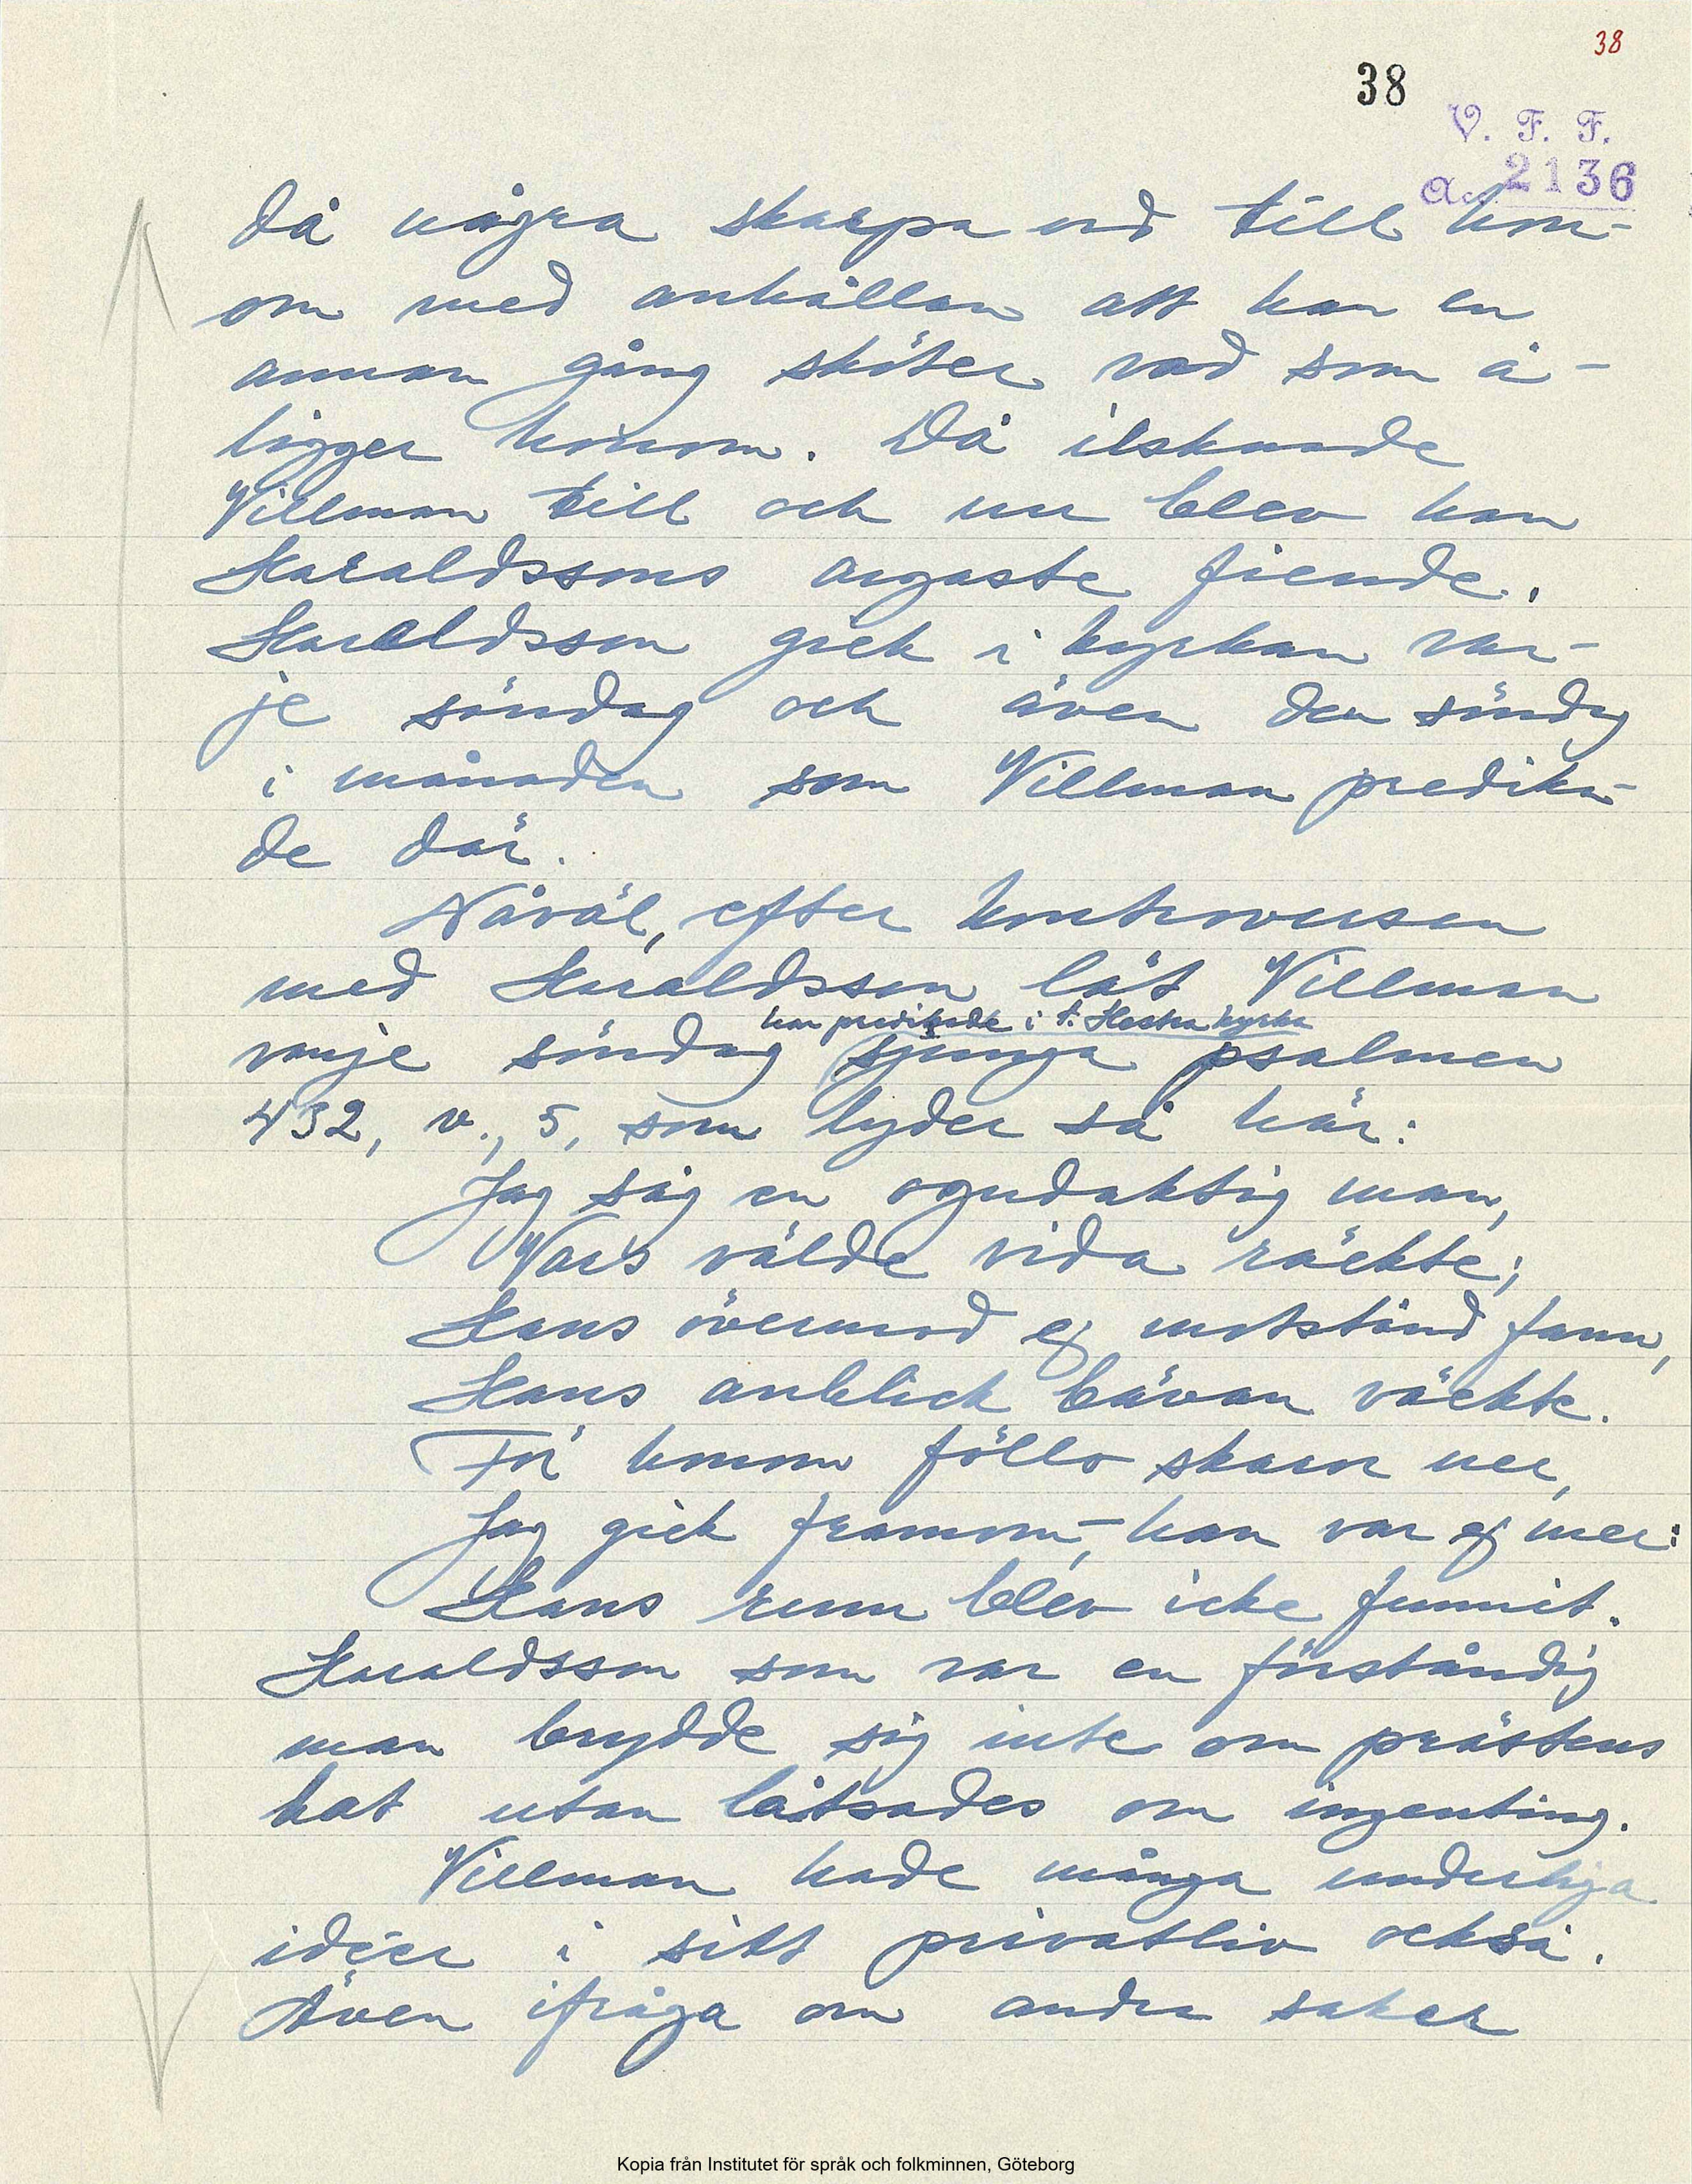 38
38
V. F. F.
Acc. 2136
då några skarpa ord till hon-
om med anhållan att han en
annan gång sköter vad som å-
ligger honom. Då ilsknade
Villman till och nu blev han
Haraldssons argaste fiende.
Haraldsson gick i kyrkan var-
je söndag och även den söndag
i månaden som Villman predika-
de där.
Nåväl, efter kontroversen
med Haraldsson lät Villman
han predikade i S. Hestra kyrka
varje söndag sjunga psalmen
432, v., 5, som lyder så här:
Jag såg en ogudaktig man,
Vars välde vida räckte;
Hans övermod ej motstånd fann,
Hans anblick bävan väckte.
För honom föllo skaror ner,
Jag gick framom,- han var ej mer:
Hans rum blev icke funnit.
Haraldsson som var en förståndig
man brydde sig inte om prästens
hat utan låtsades om ingenting.
Villman hade många underliga
idéer i sitt privatliv också.
Även ifråga om andra saker
Kopia från Institutet för språk och folkminnen, Göteborg